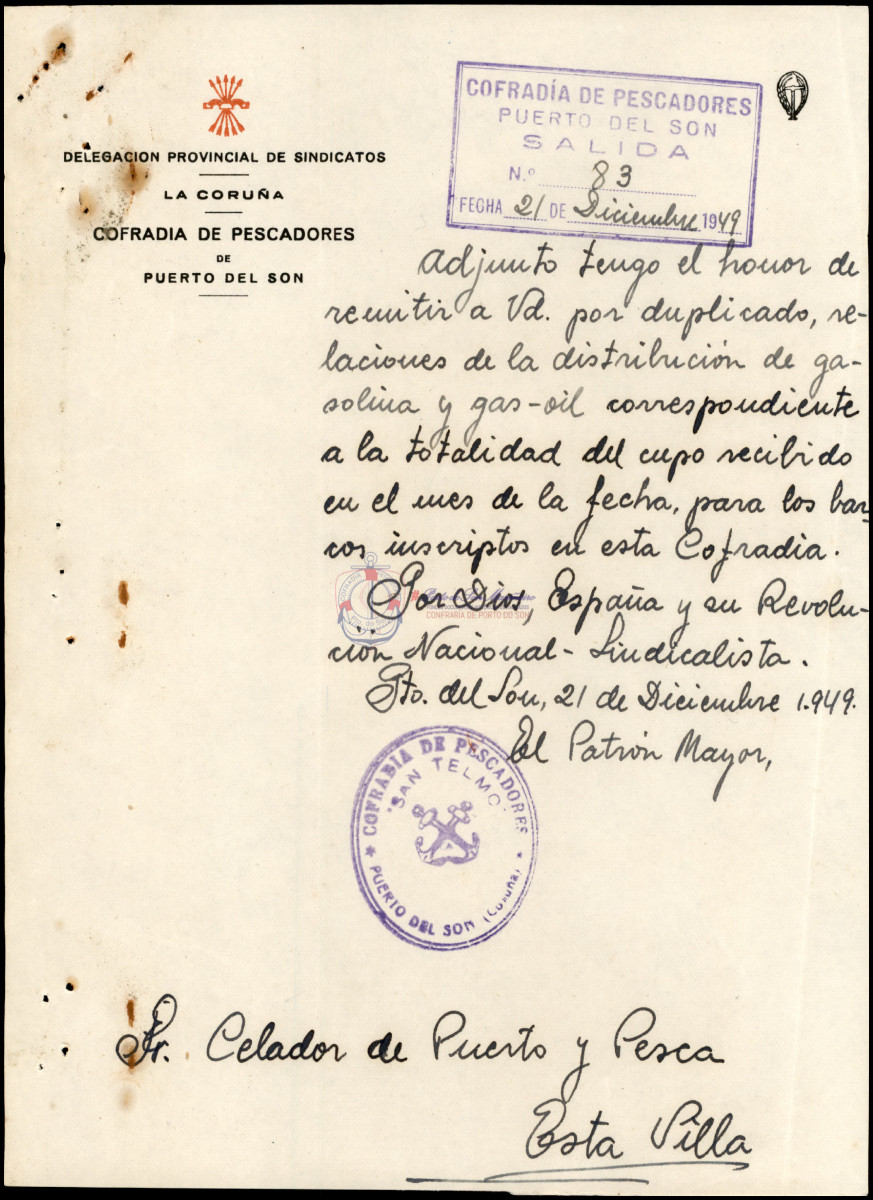 DELEGACION PROVINCIAL DE SINDICATOS
LA CORUÑA
COFRADIA DE PESCADORES
DE
PUERTO DEL SON
COFRADÍA DE PESCADORES
PUERTO DEL SON
SALIDA
N.º 83
FECHA 21 DE Diciembre 1949
Adjunto tengo el honor de
remitir a Vd. por duplicado, re-
laciones de la distribución de ga-
solina y gas-oil correspondiente
a la totalidad del cupo recibido
en el mes de la fecha, para los bar-
cos inscriptos en esta Cofradia.
Por Dios, España y su Revolu-
ción Nacional-Sindicalista.
Pto. del Son, 21 de Diciembre 1.949.
El Patrón Mayor,
COFRADIA DE PESCADORES
"SAN TELMO"
PUERTO DEL SON (Coruña)
CONFRARÍA DE PORTO DO SON
Sr. Celador de Puerto y Pesca
Esta Villa